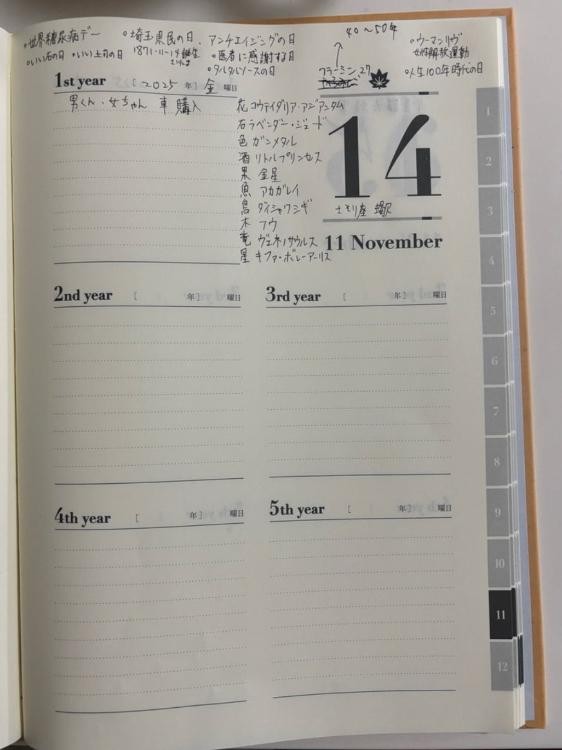 40～50年
•世界糖尿病デー •埼玉県民の日、アンチエイジングの日
•ウーマンリヴ
女性解放運動
•いい石の日 •いい上司の日 1871・11・14誕生
•医者に感謝する日
•人生100年時代の日
•タルタルソースの日
フラーミン.27
1st year [ 2025 年] 金 曜日
男くん・女ちゃん 車購入
花 コウァイダリア・アジアンタム
石 ラベンダー・ジェード
色 ガンメタル
酒 リトルプリンセス
果 金星
魚 アカガレイ
鳥 ダイシャクシギ
木 フウ
竜 ヴェネノサウルス
星 キファ・ボレアーリス
14
さそり座
11 November
2nd year [ 年] 曜日
3rd year [ 年] 曜日
4th year [ 年] 曜日
5th year [ 年] 曜日
1
2
3
4
5
6
7
8
9
10
11
12